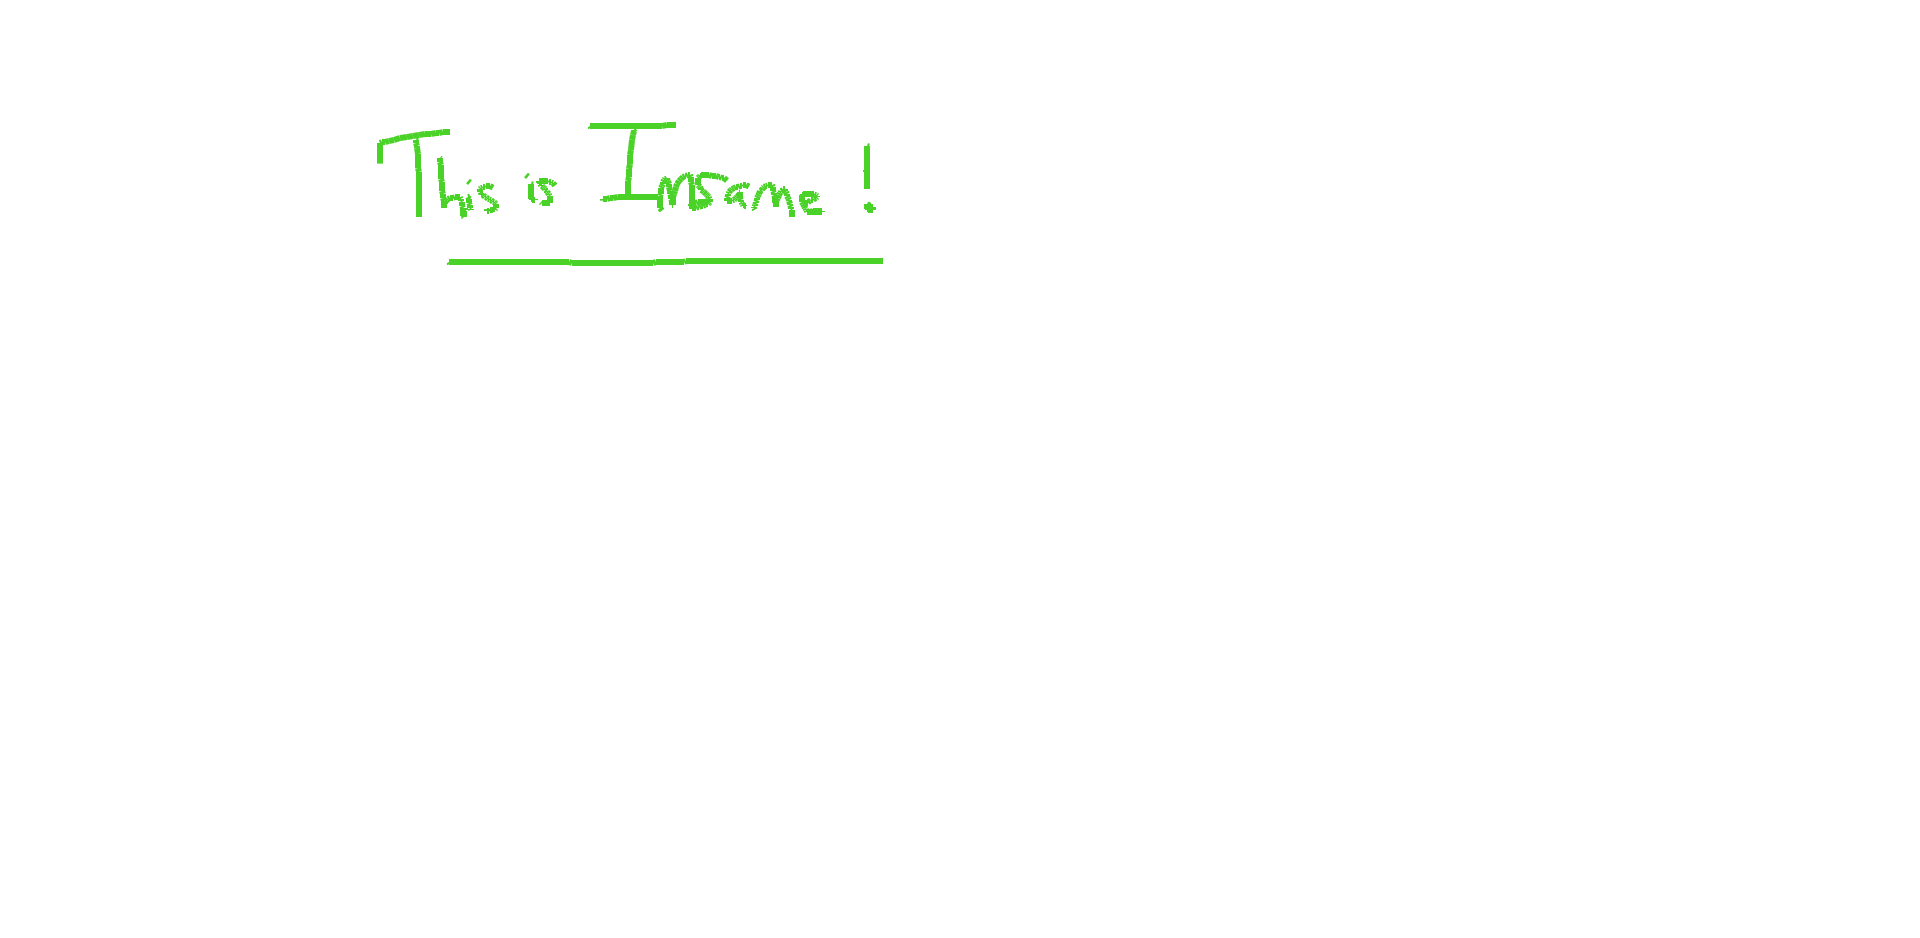 This is Insane!